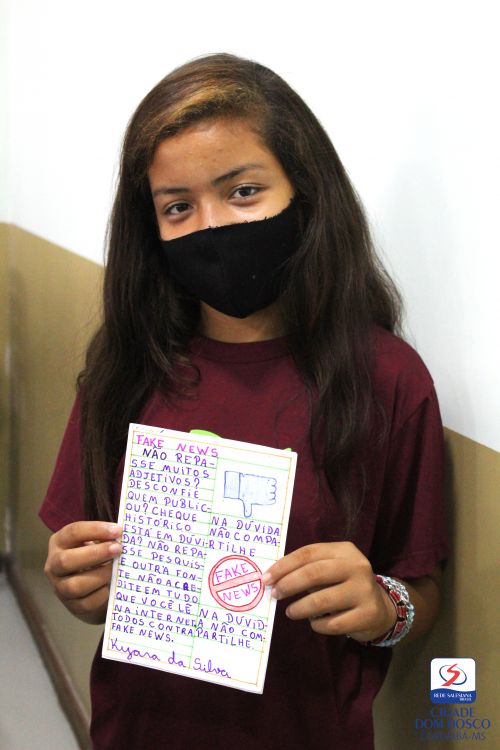 FAKE NEWS
NÃO REPA-
SSE MUITOS
ADJETIVOS?
DESCONFIE
QUEM PUBLIC-
OU? CHEQUE
HISTÓRICO
ESTÁ EM DÚVI-
DA? NÃO REPA-
SSE PESQUIS-
E OUTRA FON-
TE NÃO ACRE-
DITE EM TUDO
QUE VOCÊ LÊ
NA INTERNET
TODOS CONTRA
FAKE NEWS.
NA DÚVIDA
NÃO COMPA-
RTILHE
FAKE
NEWS
NA DÚVID-
A NÃO COM-
PARTILHE.
Kyara da Silva
REDE SALESIANA
BRASIL
CIDADE
DOM BOSCO
CORUMBÁ-MS